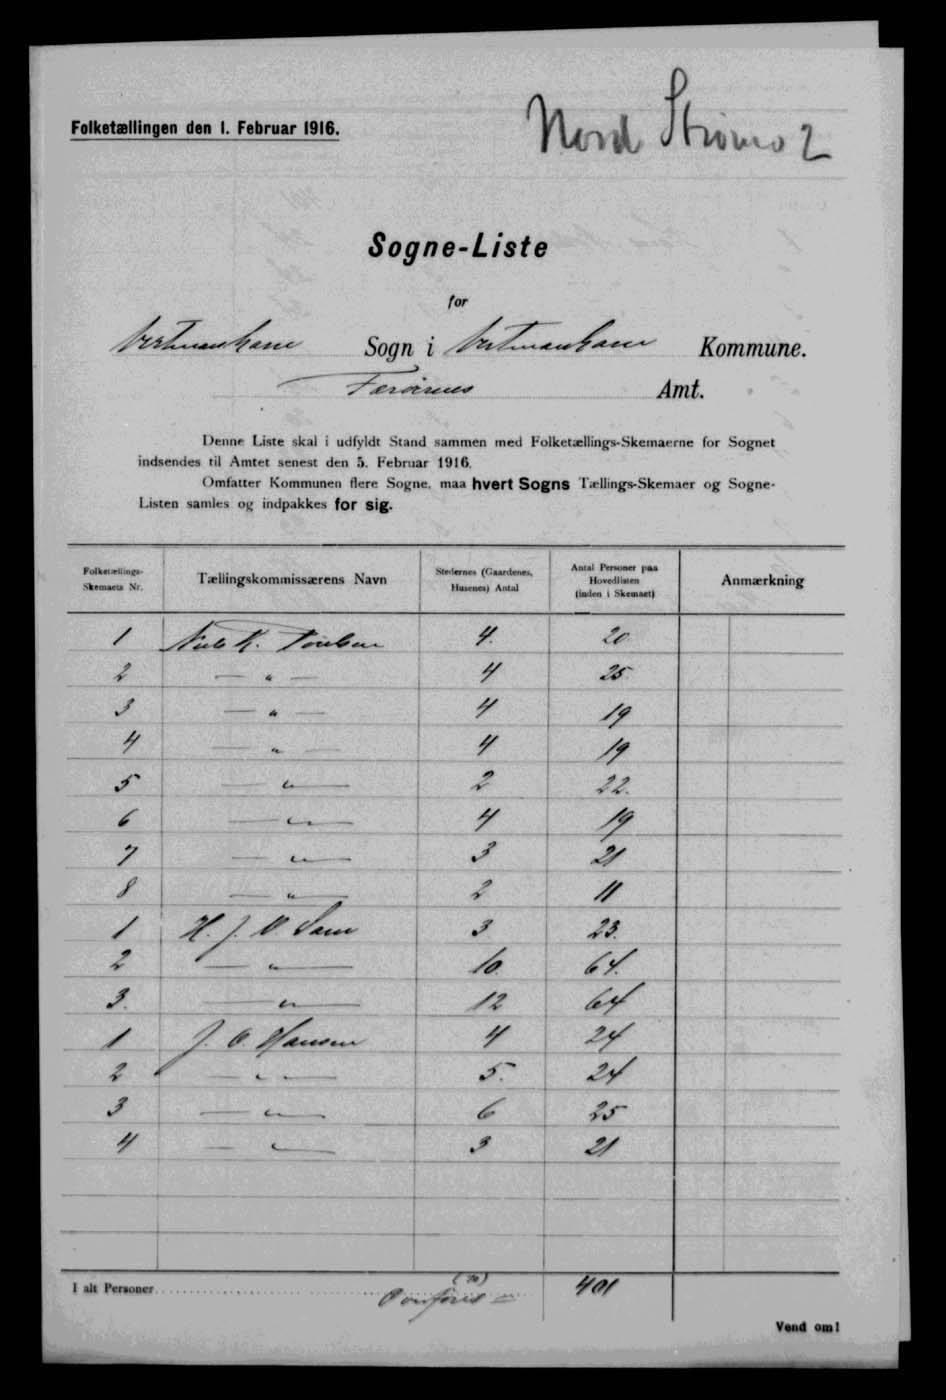 Folketællingen den 1. Februar 1916.
Nord Strømø 2
Sogne-Liste
for
Vestmanhavn Sogn i Vestmanhavn Kommune.
Færøernes Amt.
Denne Liste skal i udfyldt Stand sammen med Folketællings-Skemaerne for Sognet
indsendes til Amtet senest den 5. Februar 1916.
Omfatter Kommunen flere Sogne, maa hvert Sogns Tællings-Skemaer og Sogne-
Listen samles og indpakkes for sig.
Folketællings-
Skemaets Nr.
Tællingskommissærens Navn
Stedernes (Gaardenes,
Husenes) Antal
Antal Personer paa
Hovedlisten
(inden i Skemaet)
Anmærkning
1 Niels K. Poulsen 4. 20
2 — " — 4 25
3 — " — 4 19
4 — " — 4 19
5 — " — 2 22.
6 — " — 4 19
7 — " — 3 21
8 — " — 2 11
1 H. J. O. 3 23.
2 — " — 10. 64.
3. — " — 12 64
1 J. O. Hansen 4 24
2 — " — 5. 24
3 — " — 6 25
4 — " — 3 21
I alt Personer (70) 401
Overføres =
Vend om!